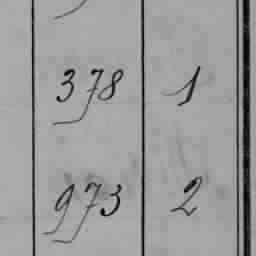 378 1
973 2